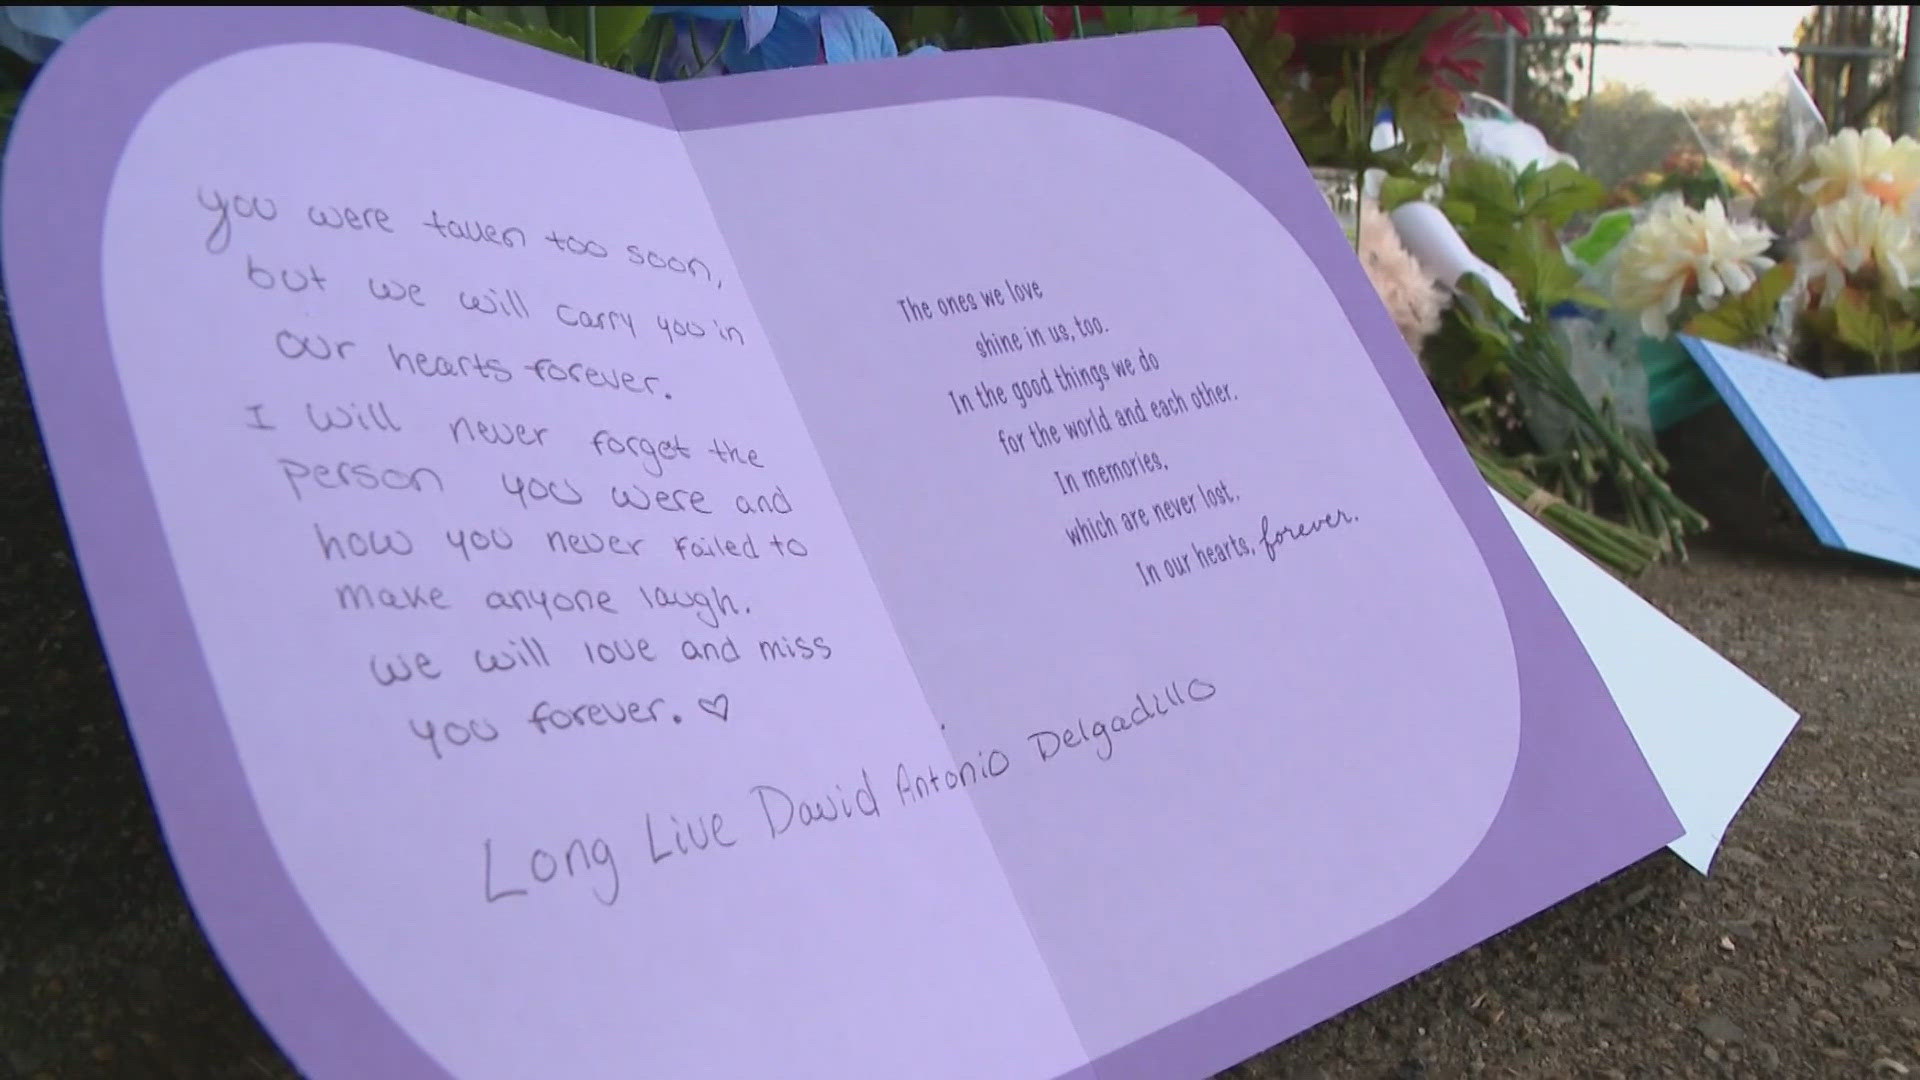 you were taken too soon,
but we will carry you in
our hearts forever.
I will never forget the
person you were and
how you never failed to
make anyone laugh.
we will love and miss
you forever. ♡
The ones we love
shine in us, too.
In the good things we do
for the world and each other.
In memories,
which are never lost.
In our hearts, forever.
Long Live David Antonio Delgadillo